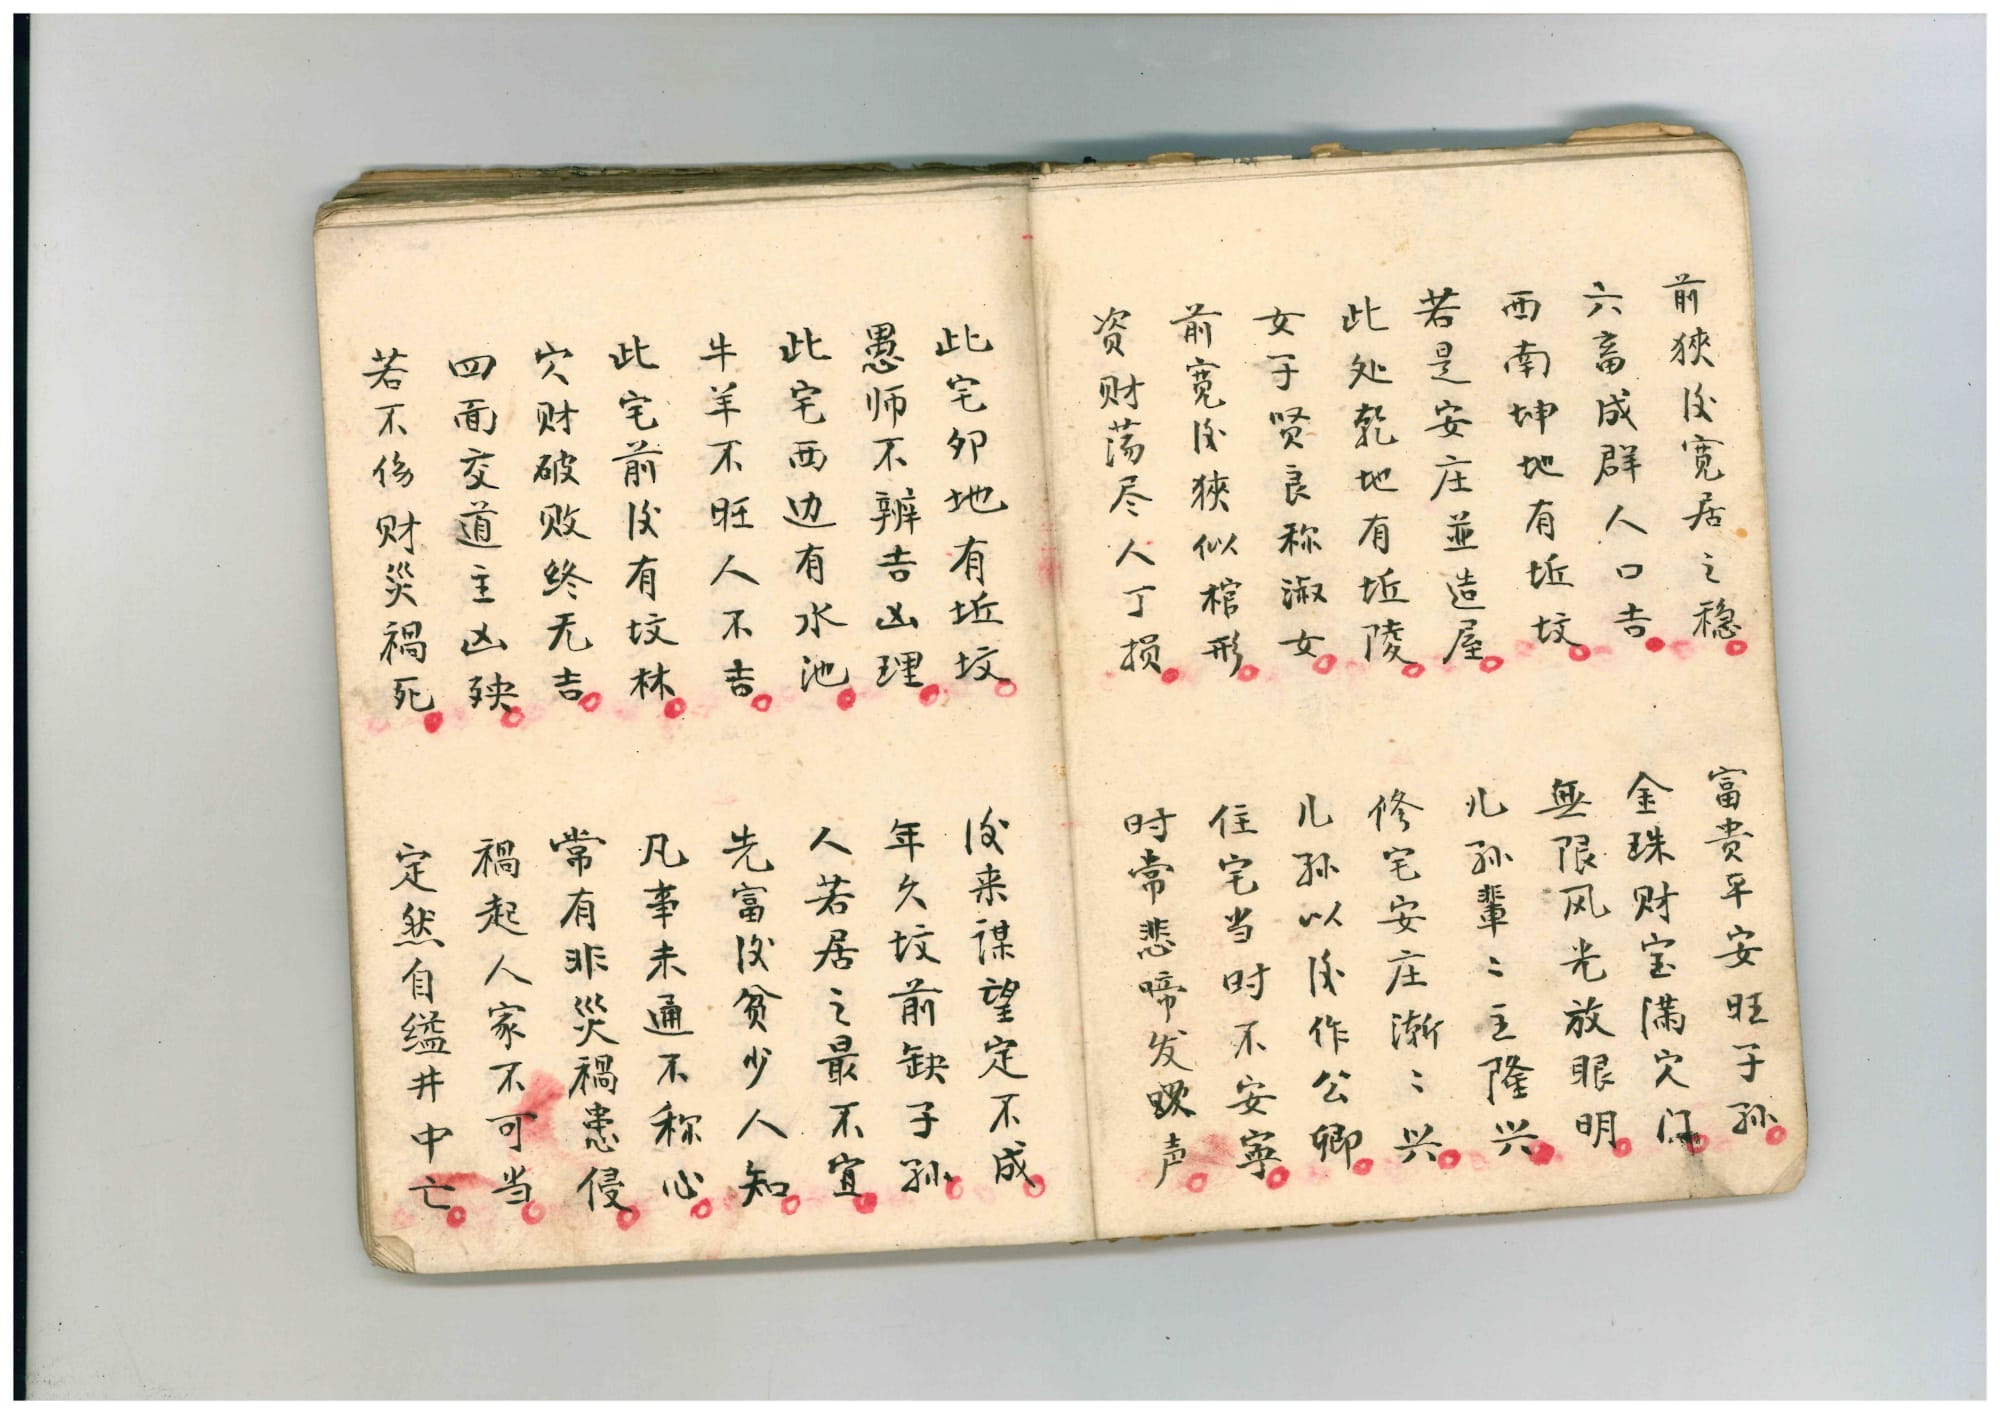 前狹後宽居之稳
富貴平安旺子孙
六畜成群人口吉
金珠财宝满穴门
西南坤地有坵坟
無限风光放眼明
若是安庄並造屋
儿孙輩〻主隆兴
此处乾地有坵陵
修宅安庄渐〻兴
女子贤良称淑女
儿孙以後作公卿
前宽後狹似棺形
住宅当时不安寧
资财荡尽人丁损
时常悲啼发声
此宅卯地有坵坟
後来谋望定不成
愚师不辨吉凶理
年久坟前缺子孙
此宅西边有水池
人若居之最不宜
牛羊不旺人不吉
先富後贫少人知
此宅前後有坟林
凡事未通不称心
穴财破败终无吉
常有非災禍患侵
四面交道主凶殃
禍起人家不可当
若不伤财災禍死
定然自缢井中亡